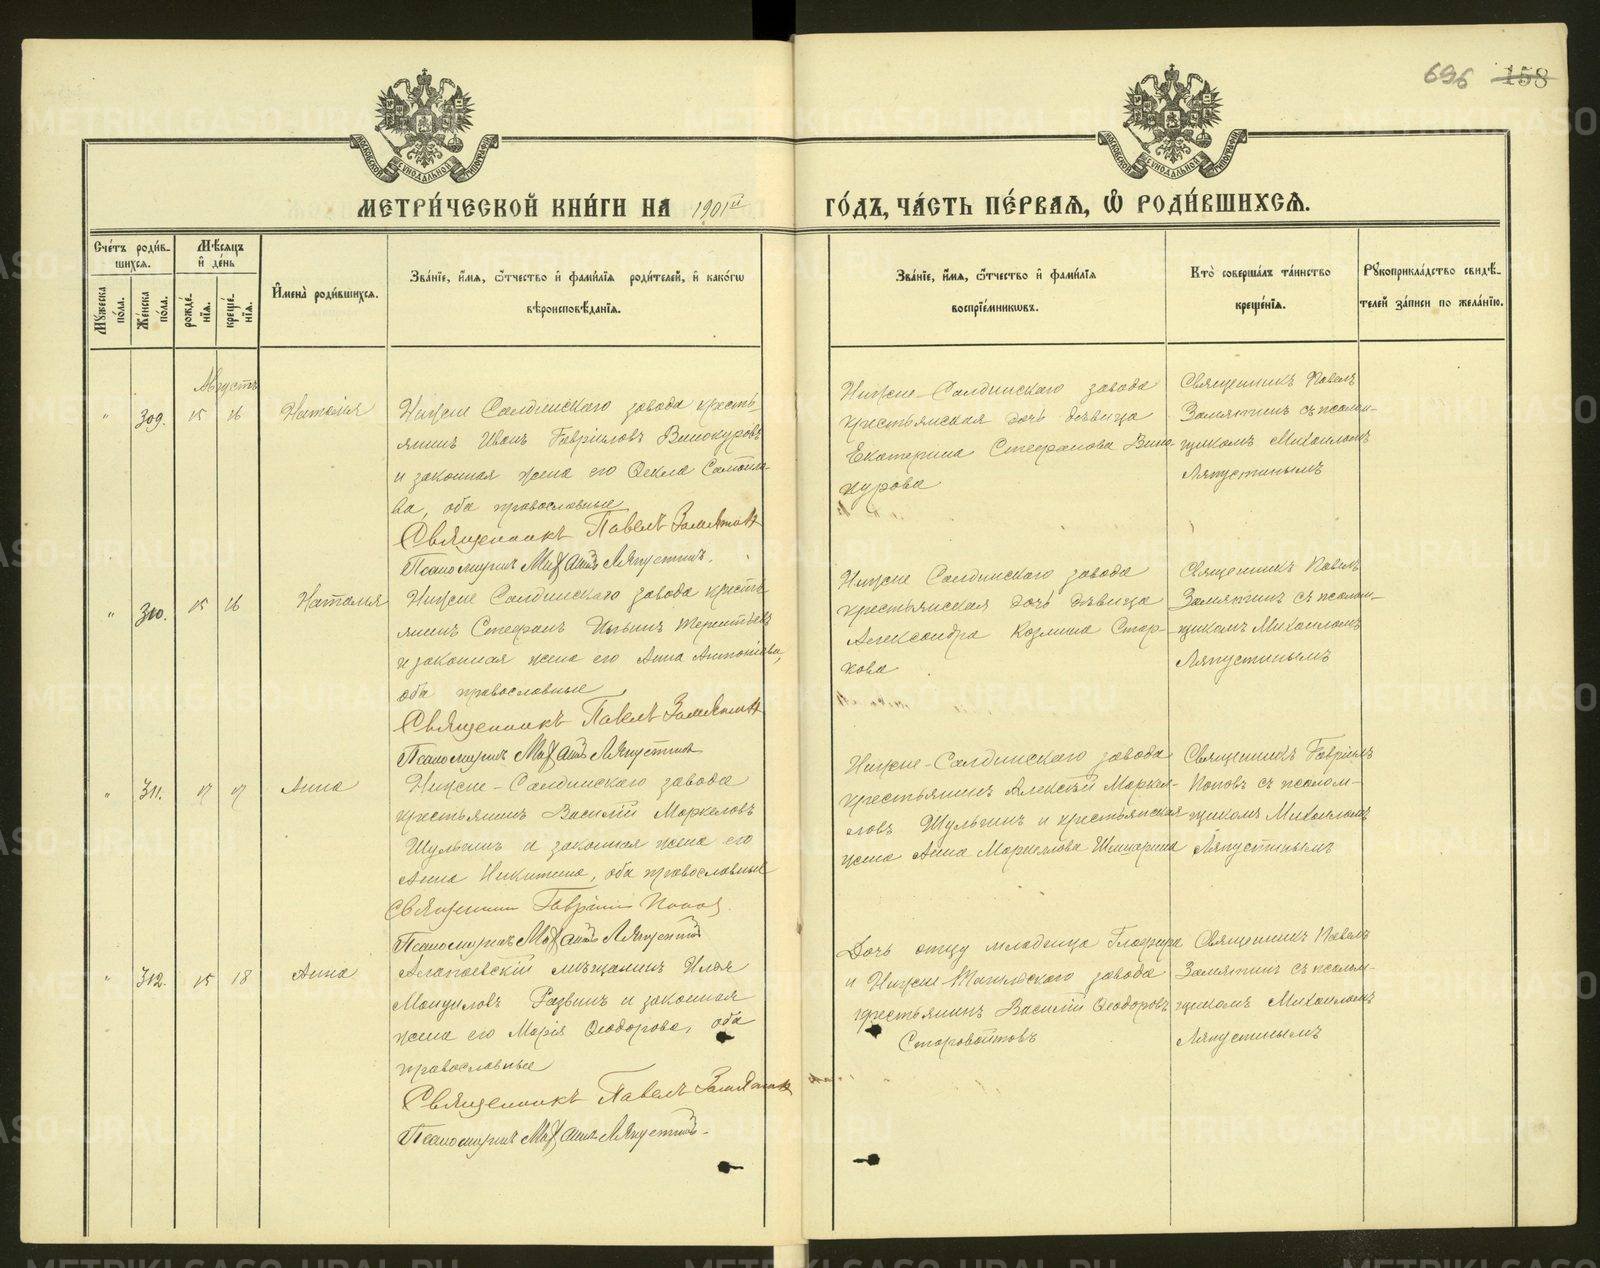 696 158
МЕТРИ́ЧЕСКОЙ КНИ́ГИ НА 1901й ГО́ДЪ, ЧА́СТЬ ПЕ́РВАѦ, Ѡ҆ РОДИ́ВШИХСѦ.
Сче́тъ роди́в-
шихсѧ.
Мꙋжеска по́ла.
Же́нска по́ла.
Мѣ́сѧцъ
и҆ де́нь
рожде́-
нїѧ.
креще́-
нїѧ.
И҆мена̀ роди́вшихсѧ.
Зва́нїе, и҆́мѧ, ѻ҆́тчество и҆ фами́лїѧ роди́телей, и҆ како́гѡ
вѣроисповѣ́данїѧ.
Зва́нїе, и҆́мѧ, ѻ҆́тчество и҆ фами́лїѧ
воспрїе́мникѡвъ.
Кто̀ соверша́лъ та́инство
креще́нїѧ.
Рꙋкоприкла́дство свидѣ́-
телей за́писи по жела́нїю.
Августъ
" 309. 15 16 Наталія
Нижне Салдинскаго завода кресть-
янинъ Иванъ Гавріиловъ Винокуровъ
и законная жена его Ѳекла Самоило-
ва, оба православные
Священникъ Павелъ Замятин
Псаломщикъ Михаилъ Ляпустинъ.
Нижне-Салдинскаго завода
крестьянская дочь дѣвица
Екатерина Стефанова Вино-
курова
Священникъ Павелъ
Замятинъ съ псалом-
щикомъ Михаиломъ
Ляпустинымъ
" 310. 15 16 Наталія
Нижне Салдинскаго завода кресть
янинъ Стефанъ Терентьевъ
и законная жена его Анна Антоніева,
оба православные
Священникъ Павелъ Замятин
Псаломщикъ Михаилъ Ляпустинъ
Нижне Салдинскаго завода
крестьянская дочь дѣвица
Александра Козмина Стар-
кова
Священникъ Павелъ
Замятинъ съ псалом-
щикомъ Михаиломъ
Ляпустинымъ
" 311. 17 17 Анна
Нижне-Салдинскаго завода
крестьянинъ Василій Маркеловъ
Шульгинъ и законная жена его
Анна Никитина, оба православные
Священникъ Гавріилъ Попов.
Псаломщикъ Михаилъ Ляпустинъ
Нижне-Салдинскаго завода
крестьянинъ Алексѣй Маркел-
ловъ Шульгинъ и крестьянская
жена Анна Маркеллова
Священникъ Гавріилъ
Поповъ съ псалом-
щикомъ Михаиломъ
Ляпустинымъ
" 312. 15 18 Анна
Алапаевскій мѣщанинъ Илья
Мануиловъ и законная
жена его Марія Ѳеодорова, оба
православные
Священникъ Павелъ Замятин
Псаломщикъ Михаилъ Ляпустинъ.
Дочь отцу младенца Глафира
и Нижне-Тагильскаго завода
крестьянинъ Василій Ѳеодоровъ
Старовойтовъ
Священникъ Павелъ
Замятинъ съ псалом-
щикомъ Михаиломъ
Ляпустинымъ
METRIKI.GASO-URAL.RU